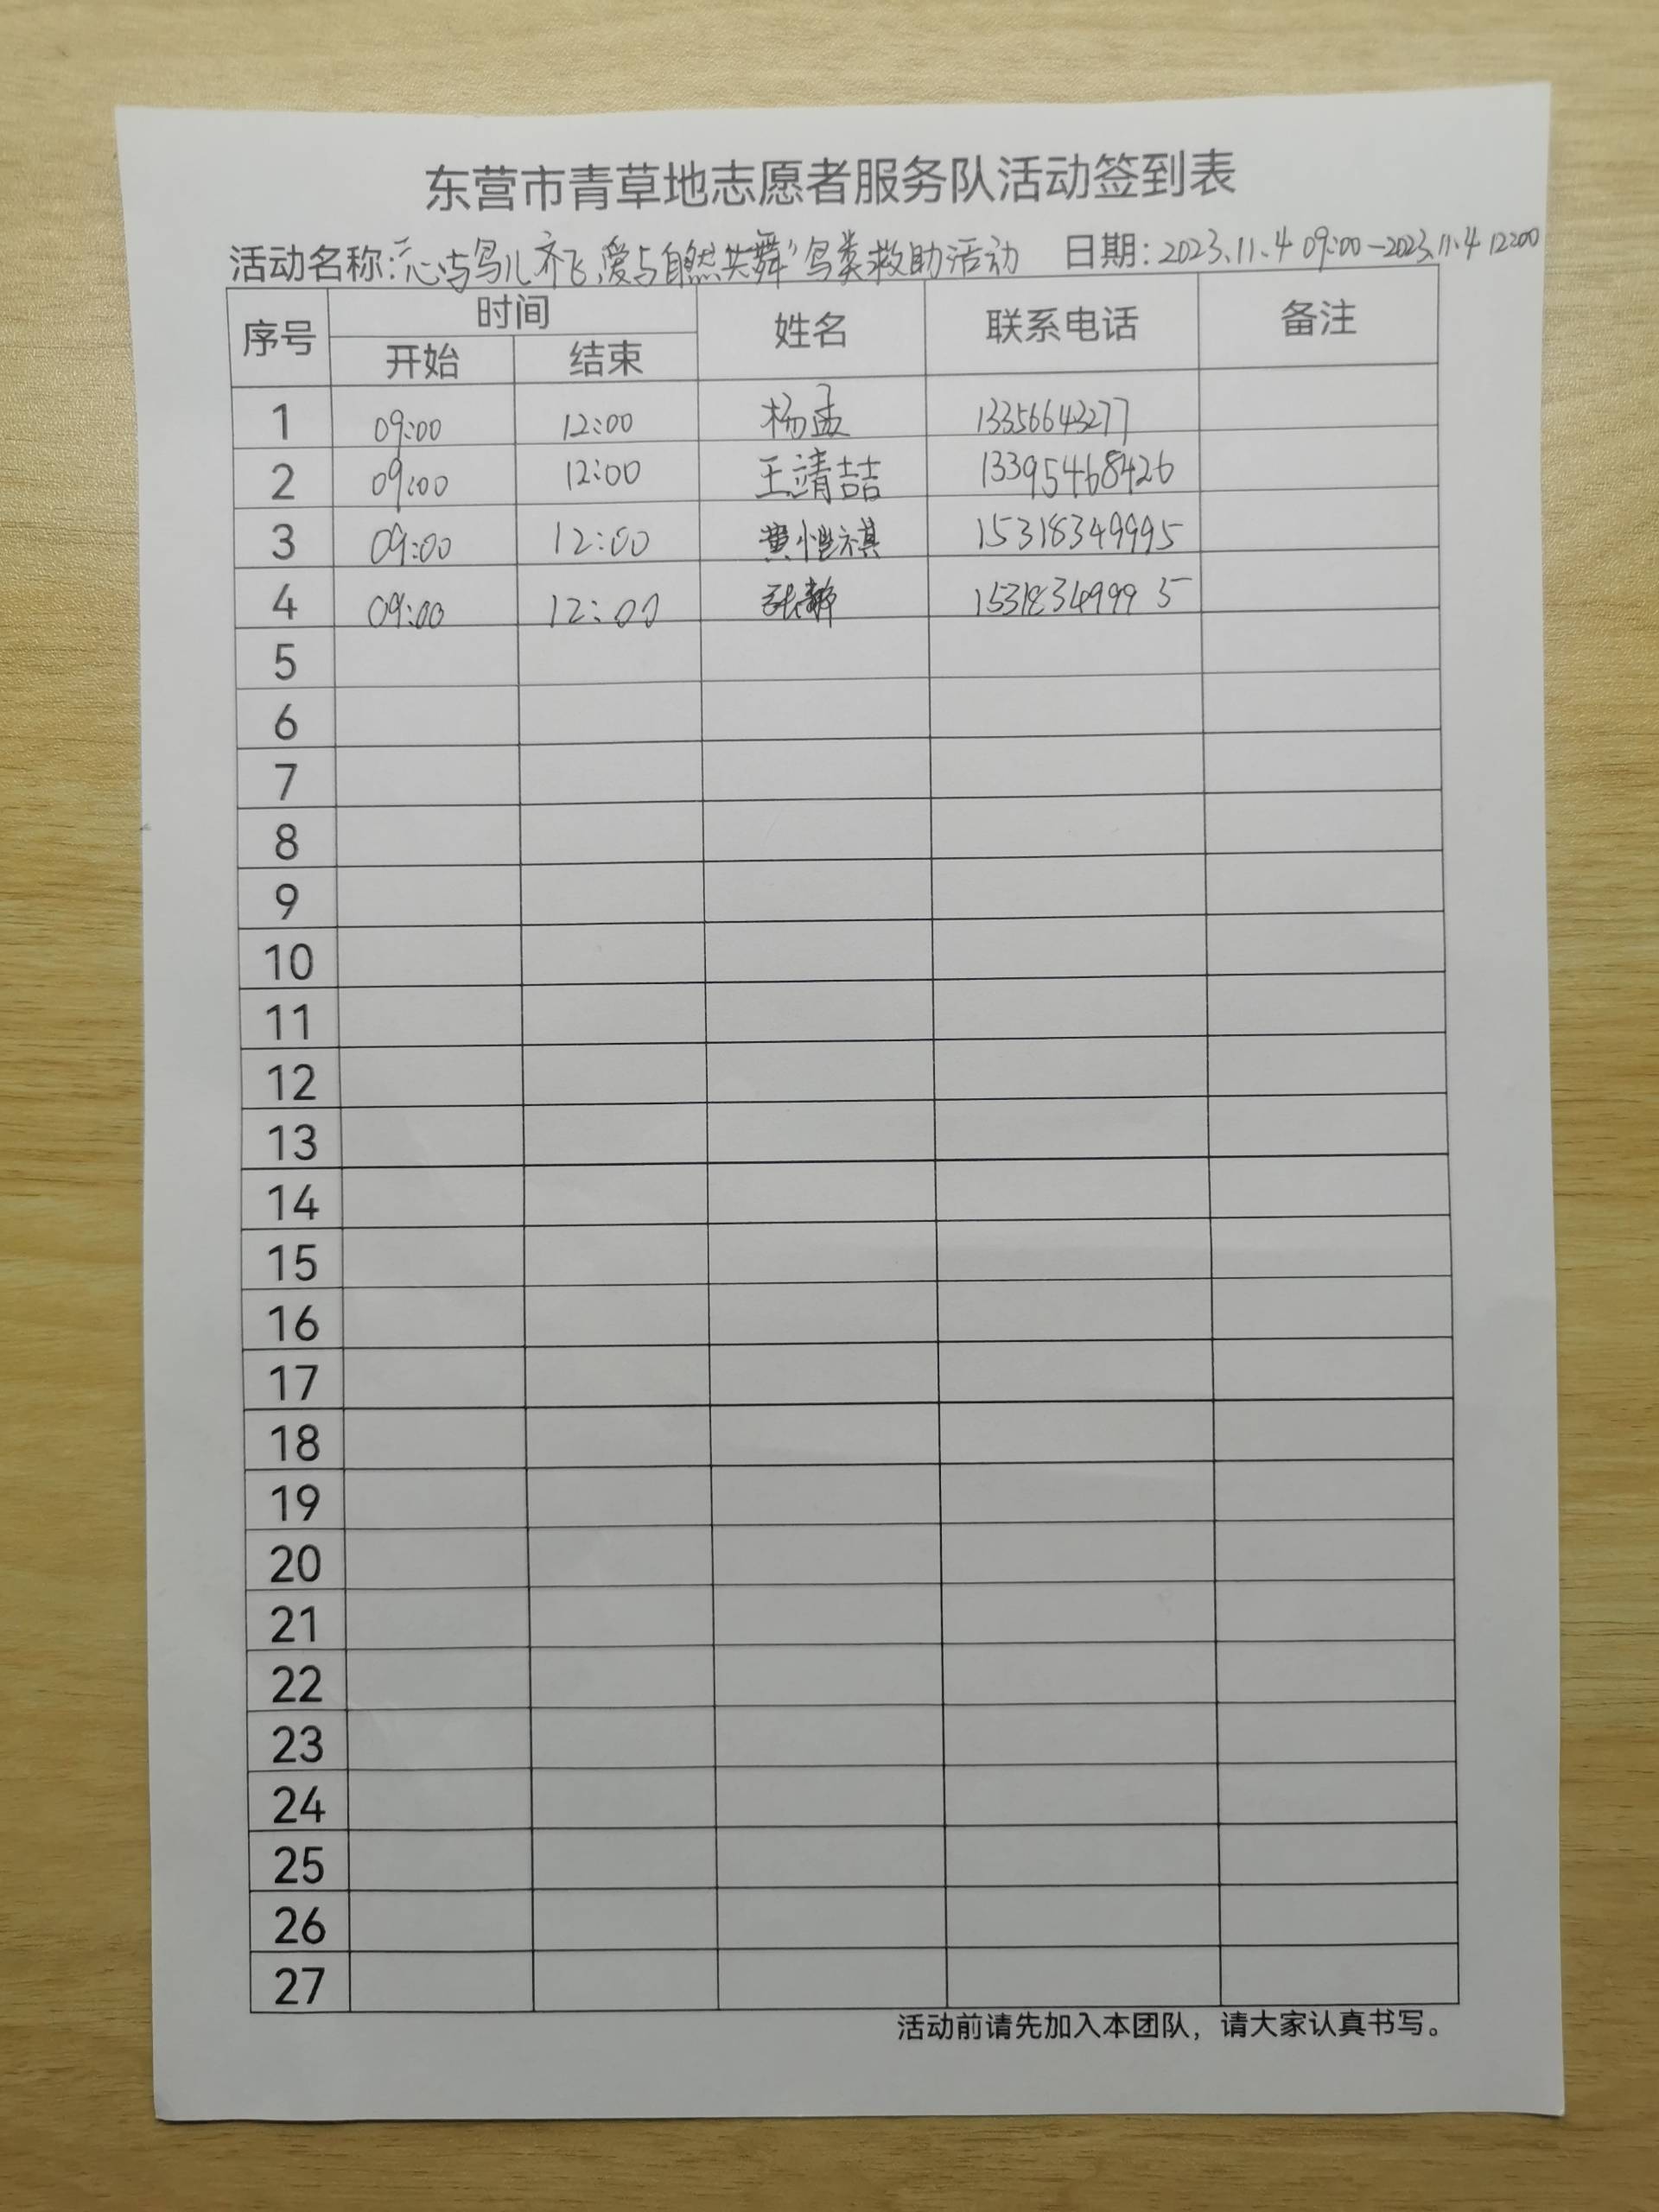 东营市青草地志愿者服务队活动签到表
活动名称:"心与鸟儿齐飞,爱与自然共舞"鸟类救助活动 日期:2023.11.4 09:00-2023.11.4 12:00
序号 时间 姓名 联系电话 备注
开始 结束
1 09:00 12:00 杨孟 13356643277
2 09:00 12:00 王靖喆 13395468426
3 09:00 12:00 黄恺祺 15318349995
4 09:00 12:00 张 15318349995
5
6
7
8
9
10
11
12
13
14
15
16
17
18
19
20
21
22
23
24
25
26
27
活动前请先加入本团队，请大家认真书写。